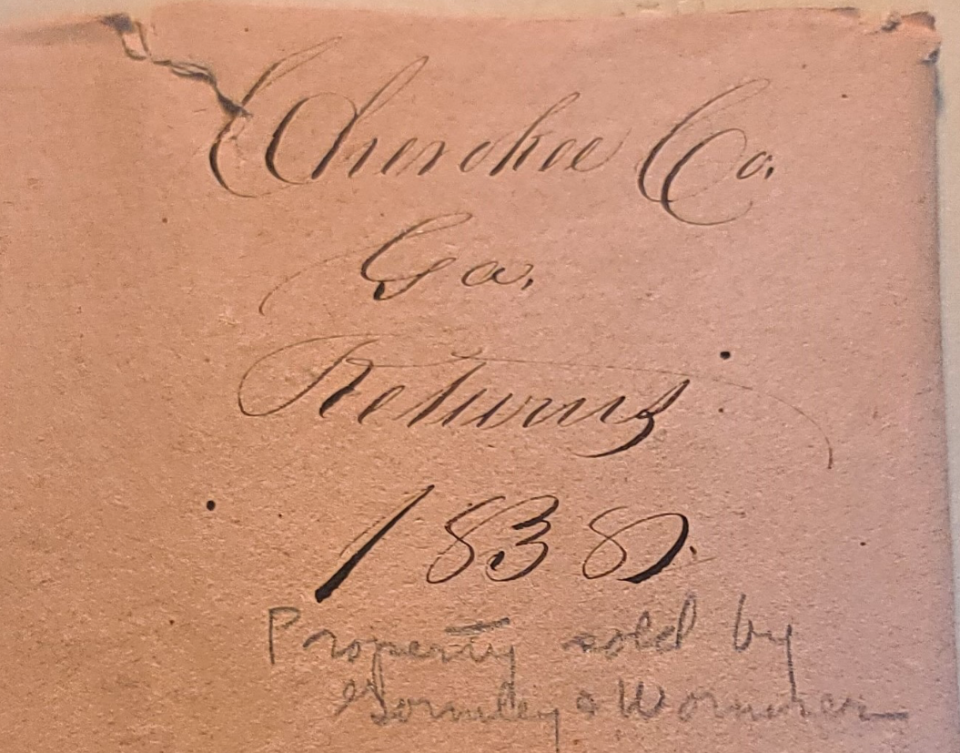 Cherokee Co.
Ga.
Returns
1838.
Property sold by
Gormley & Wornken